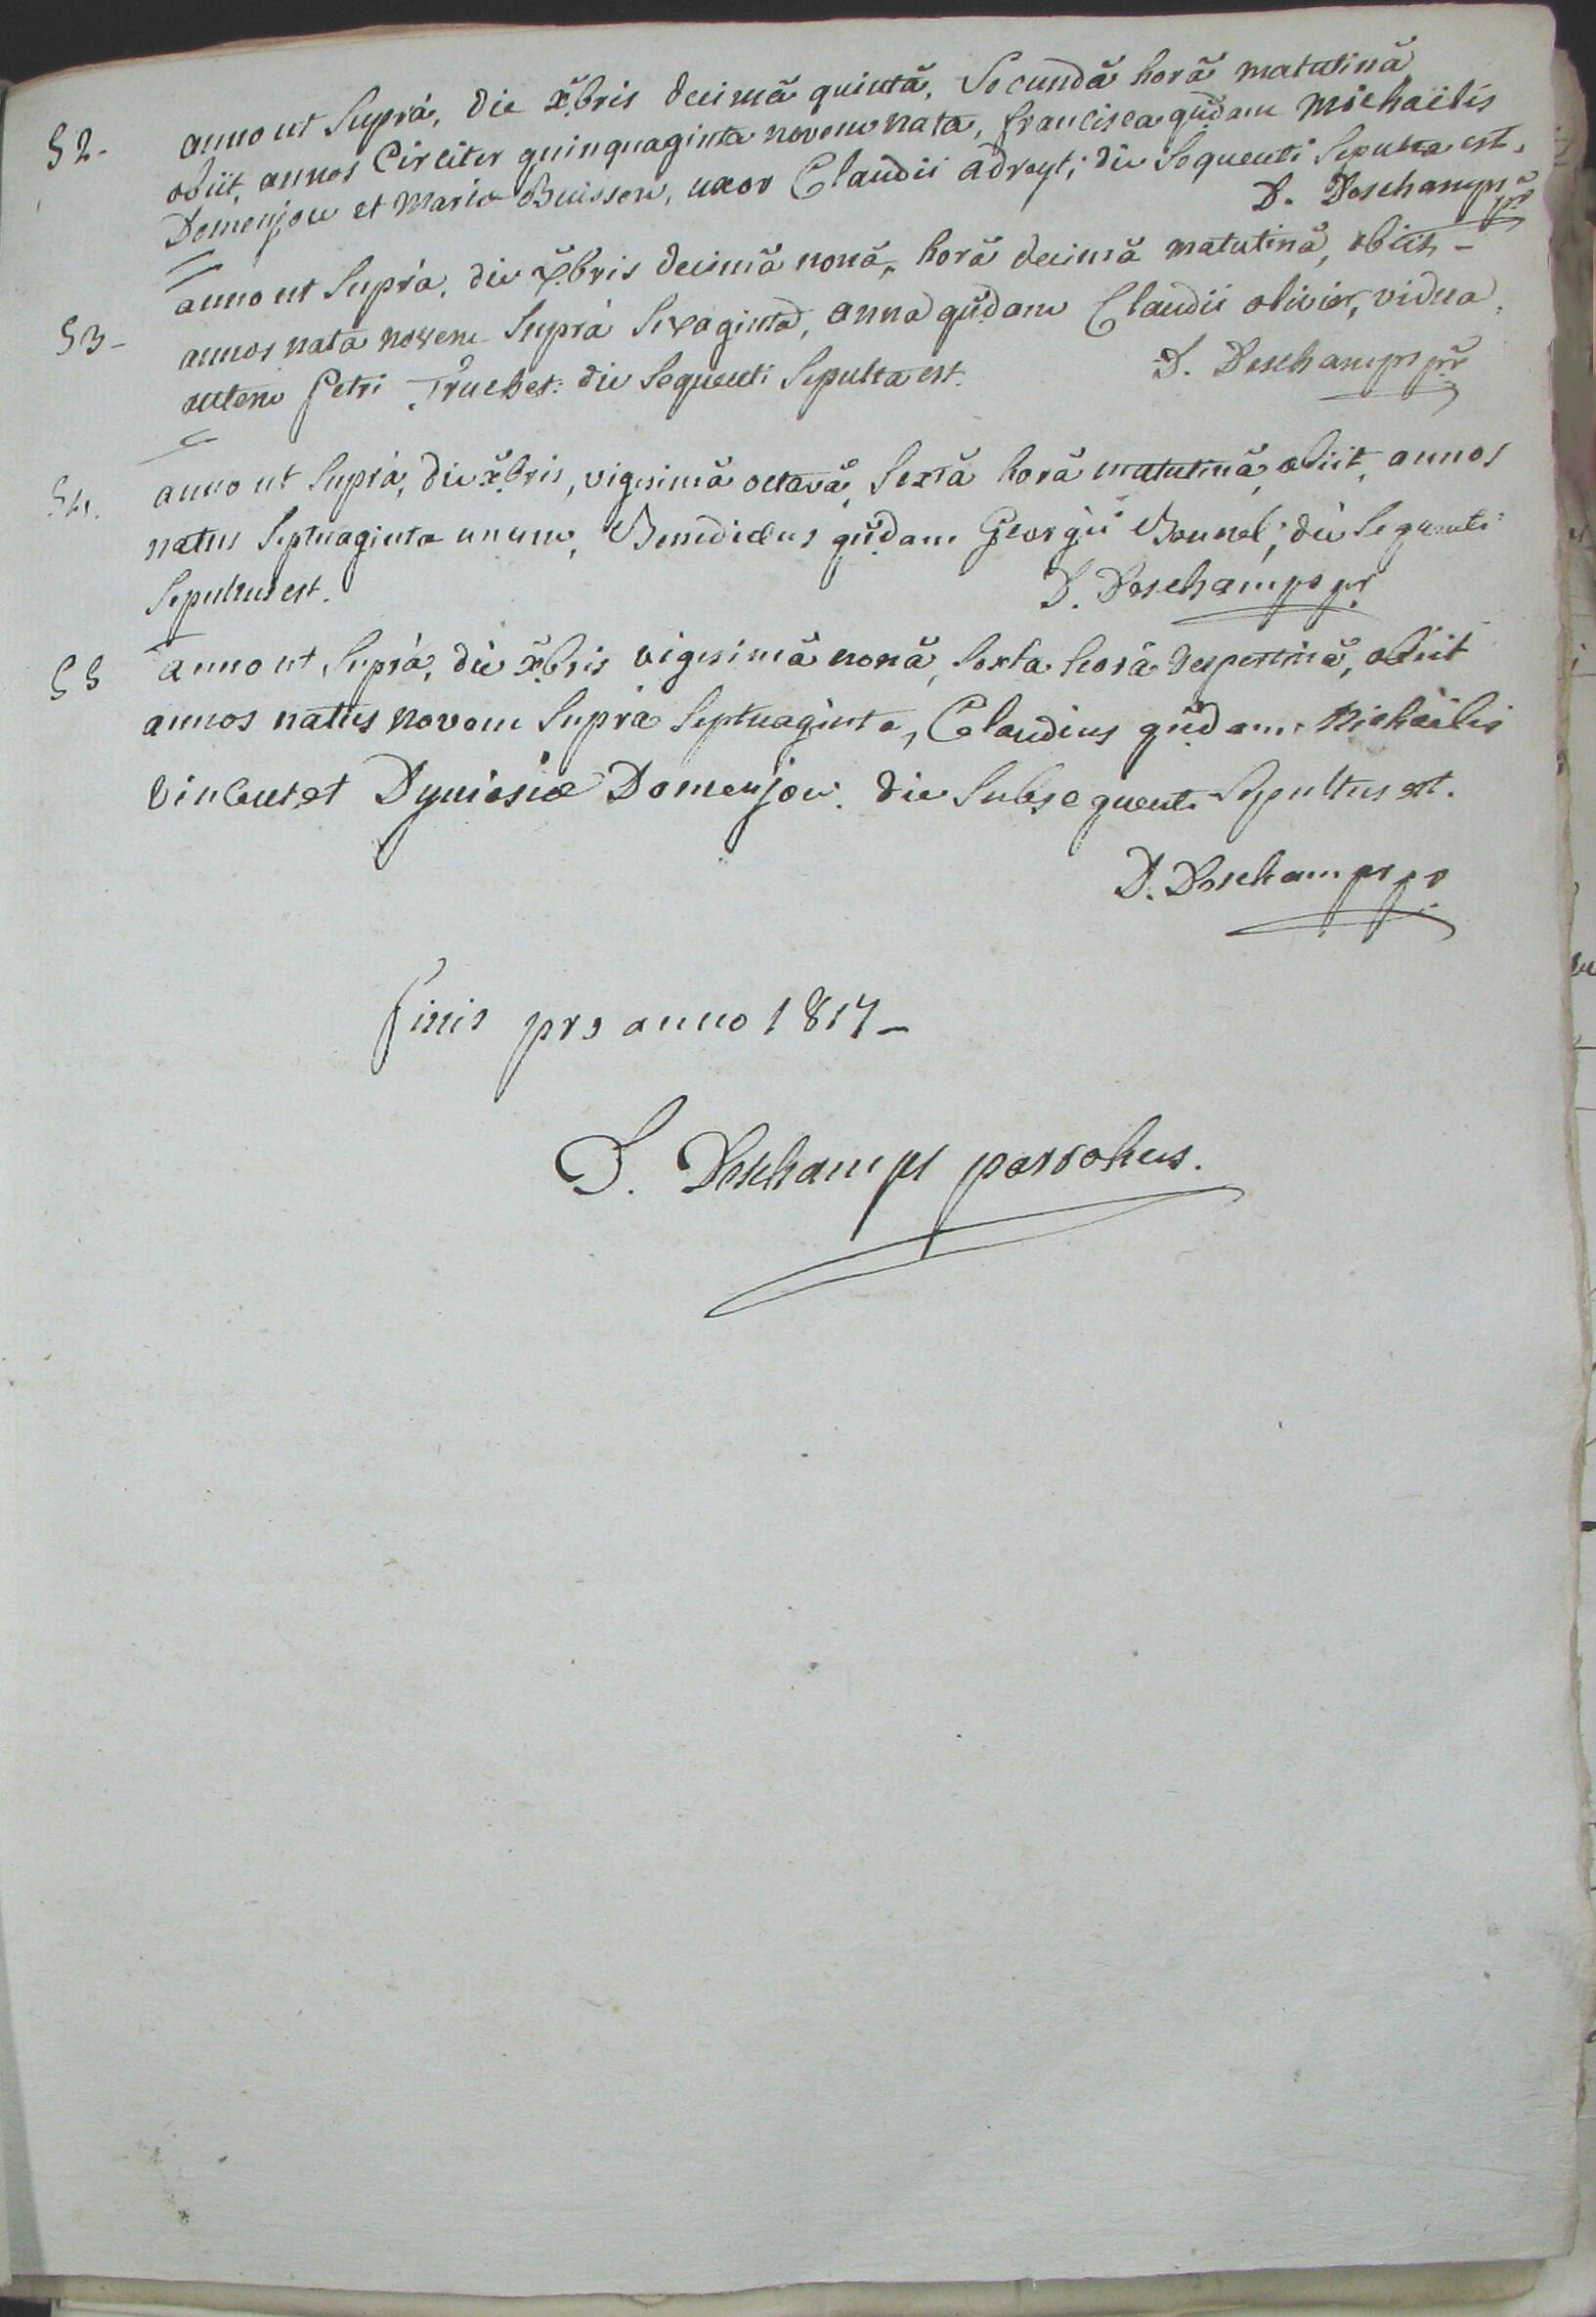 52- anno ut Suprà, die xbris decimâ quintâ, Secundâ horâ matutinâ
obiit, annos Circiter quinquaginta novem nata, francisca qudam Michaëlis
Domenjou et Mariæ Buisson, uxor Claudii adreyt; die Sequenti Sepulta est.
D. Deschamps pr
53- anno ut Suprà, die xbris decimâ nonâ, horâ decimâ matutinâ, obiit -
annos nata novem Suprà Sexaginta, anna qudam Claudii olivier, vidua
autem Petri Truchet. die Sequenti Sepulta est.
D. Deschamps pr
54. anno ut Suprà, die xbris, vigesimâ octavâ, Sextâ horâ matutinâ, obiit, annos
natus Septuaginta unum, Benedictus qudam Georgii Bonnel; die Sequenti
Sepultus est.
D. Deschamps pr
55 anno ut Suprà, die xbris vigesimâ nonâ, Sexta horâ vespertinâ, obiit
annos natus novem Suprà Septuaginta, Claudius qudam Michaëlis
Vincent et Dynisiæ Domenjou. die Subsequenti Sepultus est.
D. Deschamps pr
finis pro anno 1817-
D. Deschamps parrochus.